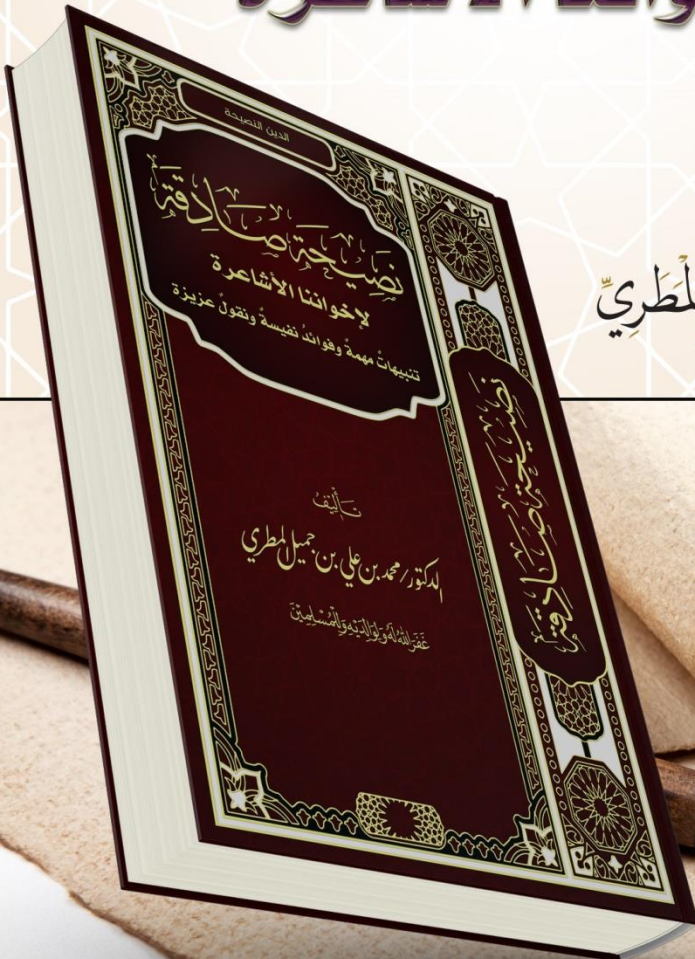 المطَرِيِّ
الدين النصيحة
نصيحة صادقة
لإخواننا الأشاعرة
تنبيهاتٌ مهمةٌ وفوائدُ نفيسةٌ ونقولٌ عزيزة
تأليف
الدكتور/محمد بن علي بن جميل المطري
غَفَرَ اللهُ لَهُ وَلِوَالِدَيْهِ وَالْمُسْلِمِيْنَ
نصيحة صادقة